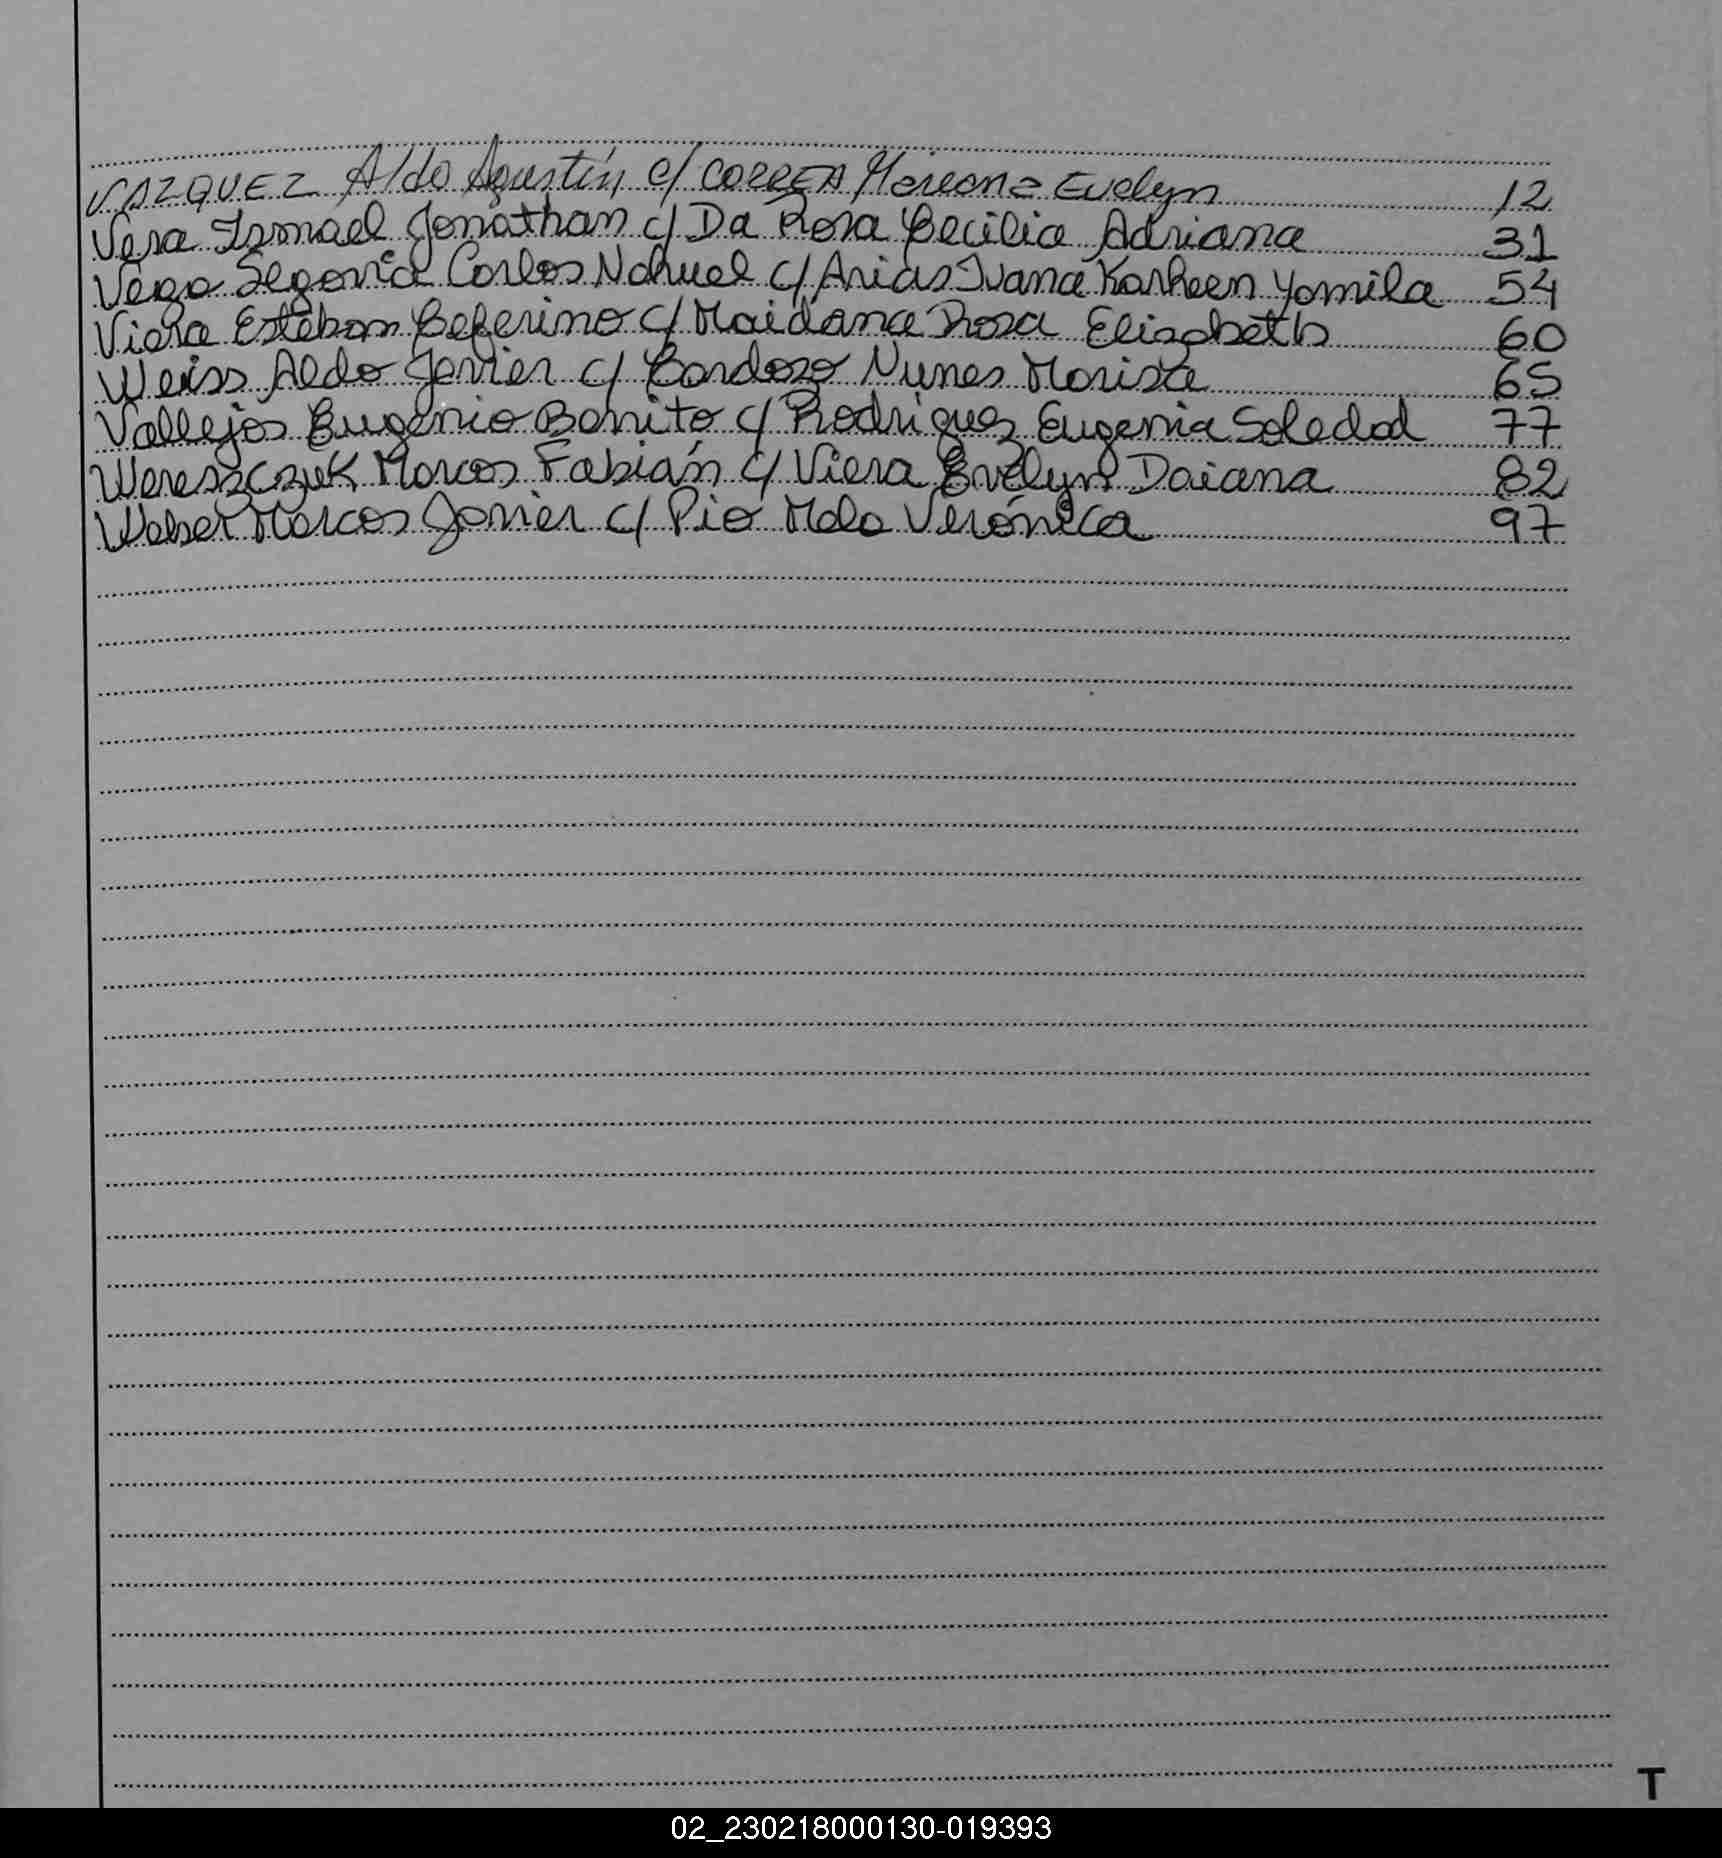 VAZQUEZ Aldo Agustín c/ CORREA Mariana Evelyn 12
Vera Ismael Jonathan c/ Da Rosa Cecilia Adriana 31
Vega Segovia Carlos Nahuel c/ Arias Ivana Karheen Yamila 54
Viera Esteban Ceferino c/ Maidana Rosa Elizabeth 60
Weiss Aldo Javier c/ Cardozo Nunes Marisa 65
Vallejos Eugenio Benito c/ Rodriguez Eugenia Soledad 77
Wereszczuk Marcos Fabián c/ Viera Evelyn Daiana 82
Weber Marcos Javier c/ Pio Melo Verónica 97
T
02_230218000130-019393